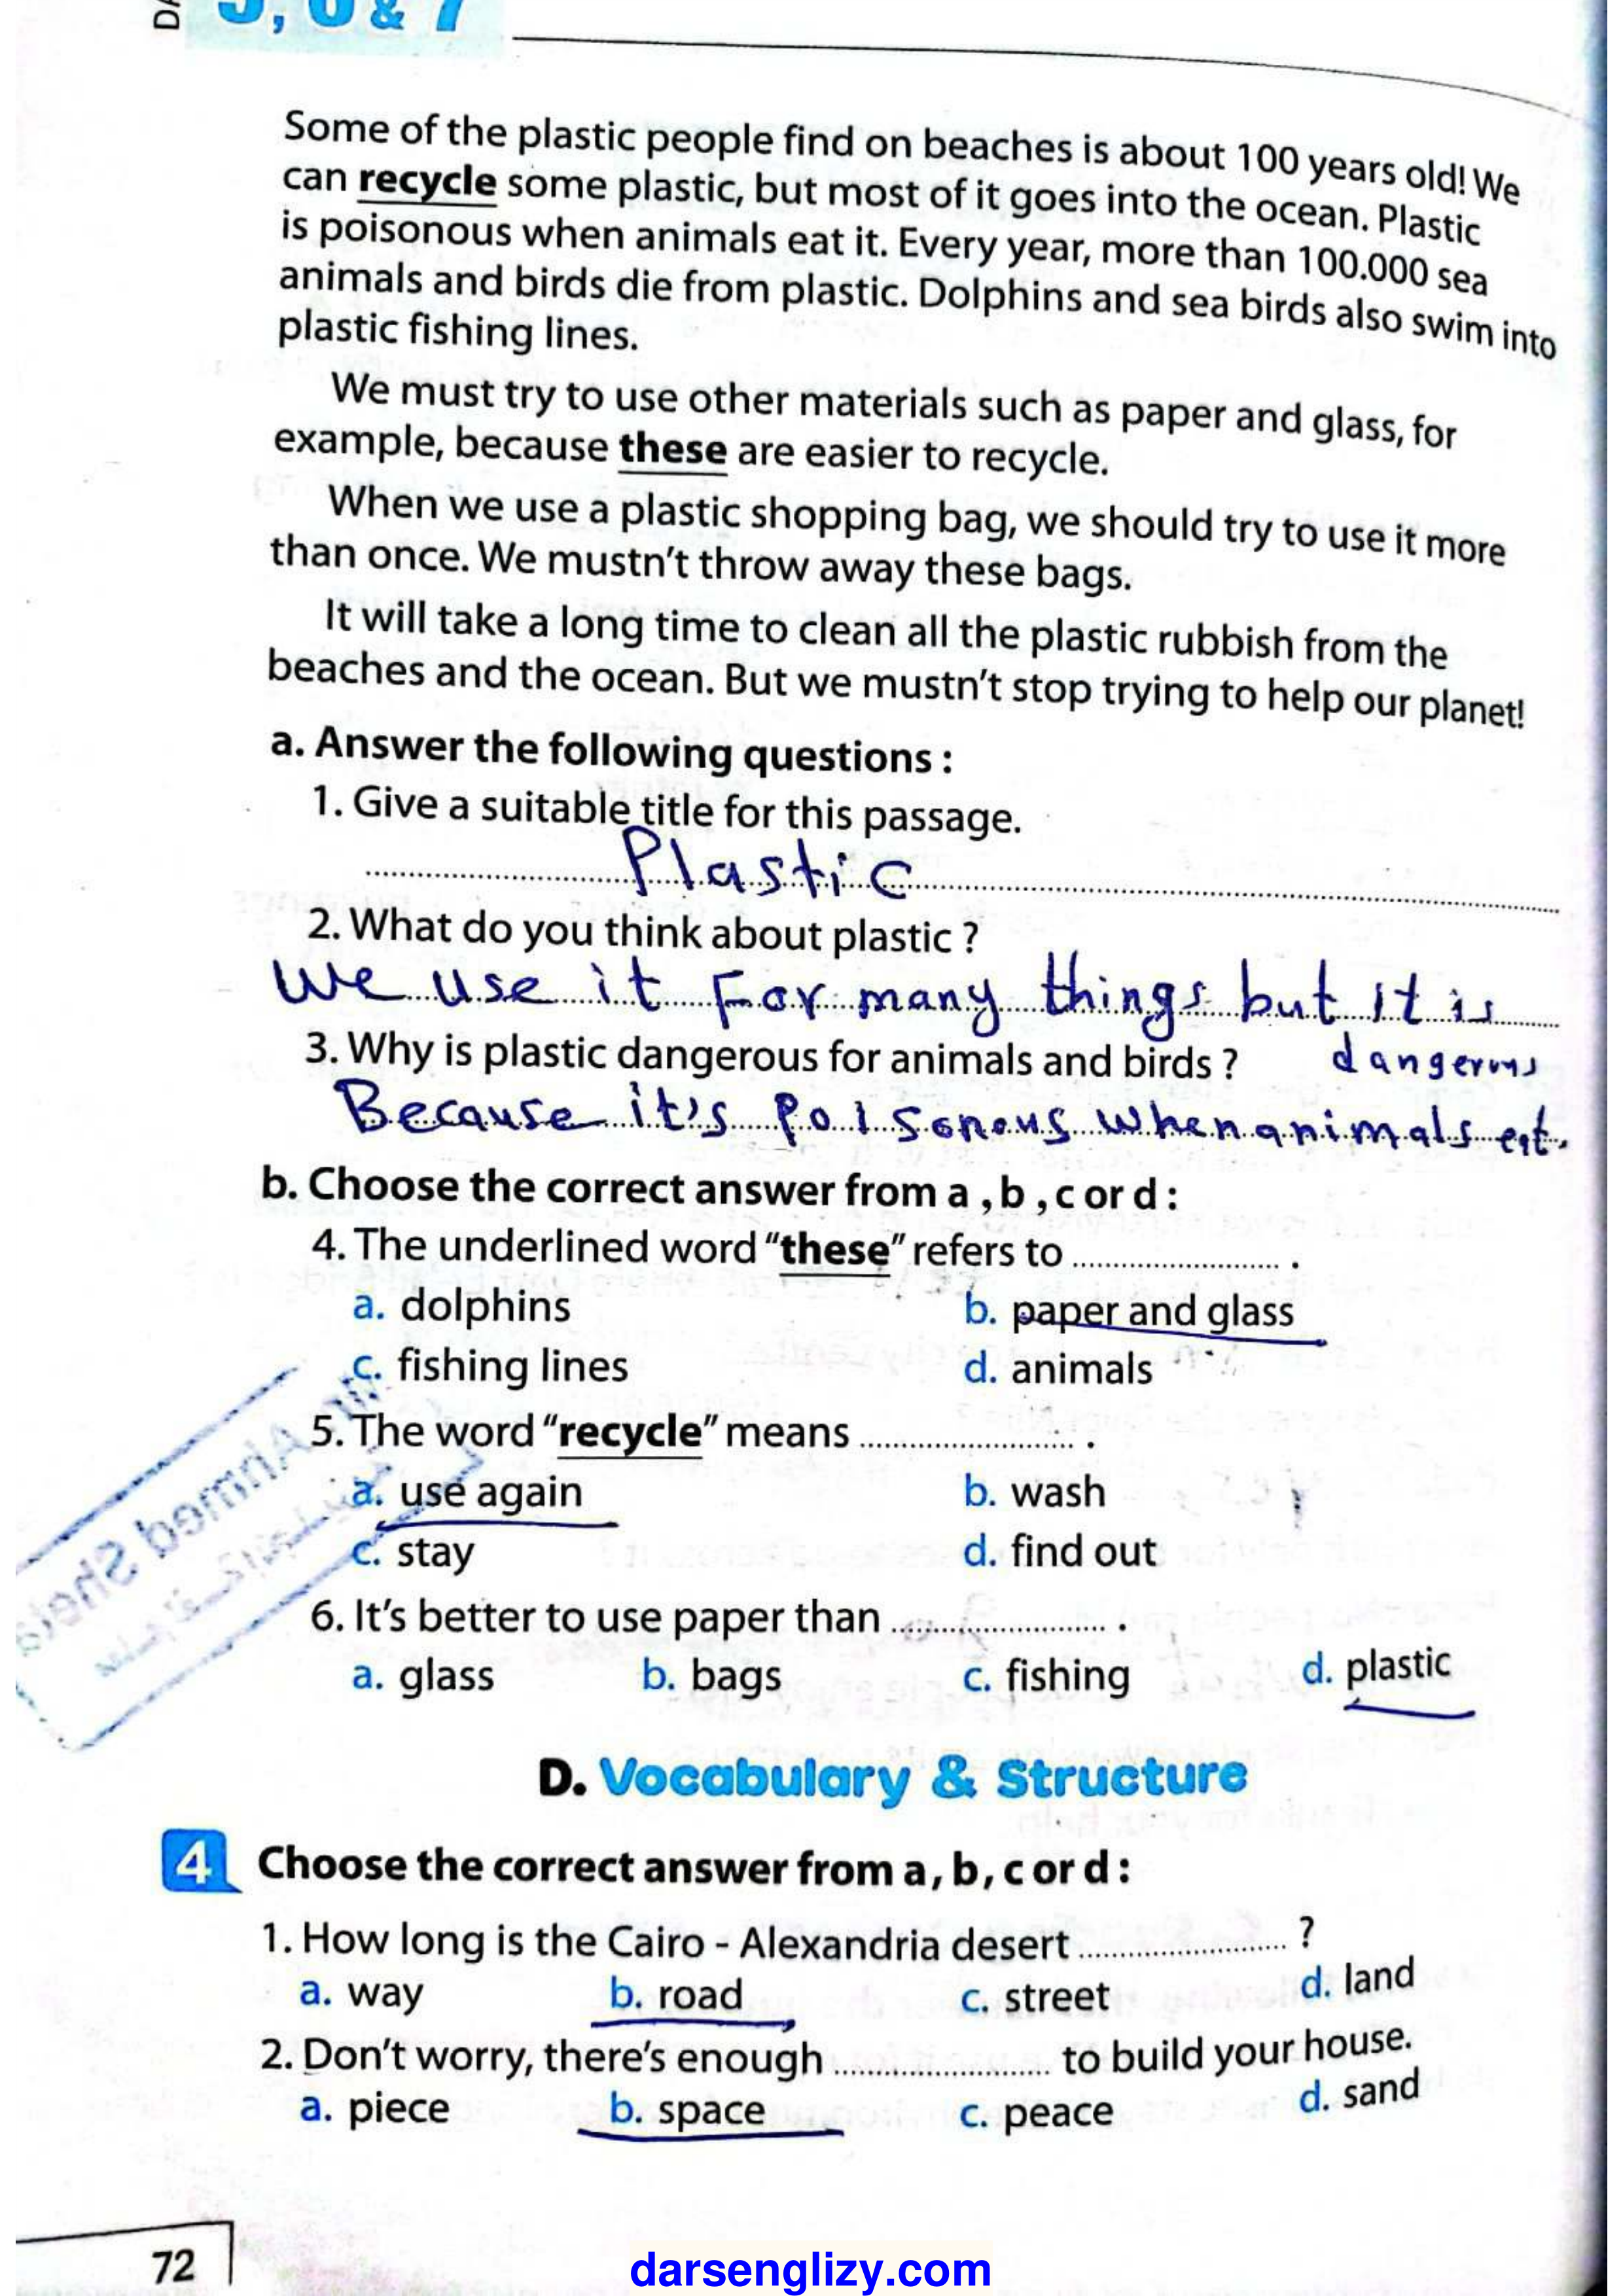 5, 6 & 7
Some of the plastic people find on beaches is about 100 years old! We
can recycle some plastic, but most of it goes into the ocean. Plastic
is poisonous when animals eat it. Every year, more than 100.000 sea
animals and birds die from plastic. Dolphins and sea birds also swim into
plastic fishing lines.
We must try to use other materials such as paper and glass, for
example, because these are easier to recycle.
When we use a plastic shopping bag, we should try to use it more
than once. We mustn't throw away these bags.
It will take a long time to clean all the plastic rubbish from the
beaches and the ocean. But we mustn't stop trying to help our planet!
a. Answer the following questions :
1. Give a suitable title for this passage.
Plastic
2. What do you think about plastic ?
We use it For many things but it is
dangerous
3. Why is plastic dangerous for animals and birds ?
Because it's poisonous when animals eat.
b. Choose the correct answer from a , b , c or d :
4. The underlined word "these" refers to ........................ .
a. dolphins b. paper and glass
c. fishing lines d. animals
5. The word "recycle" means ........................ .
a. use again b. wash
c. stay d. find out
6. It's better to use paper than ........................ .
a. glass b. bags c. fishing d. plastic
D. Vocabulary & Structure
4 Choose the correct answer from a , b , c or d :
1. How long is the Cairo - Alexandria desert ........................ ?
a. way b. road c. street d. land
2. Don't worry, there's enough ........................ to build your house.
a. piece b. space c. peace d. sand
72
darsenglizy.com